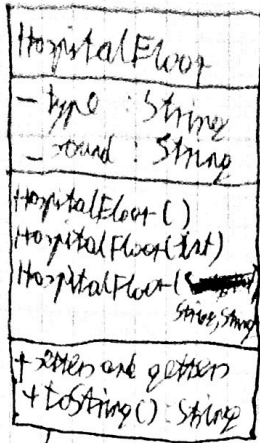 HospitalFloor
- type : String
- sound : String
HospitalFloor()
HospitalFloor(int)
HospitalFloor(
String, String)
+ setters and getters
+ toString() : String